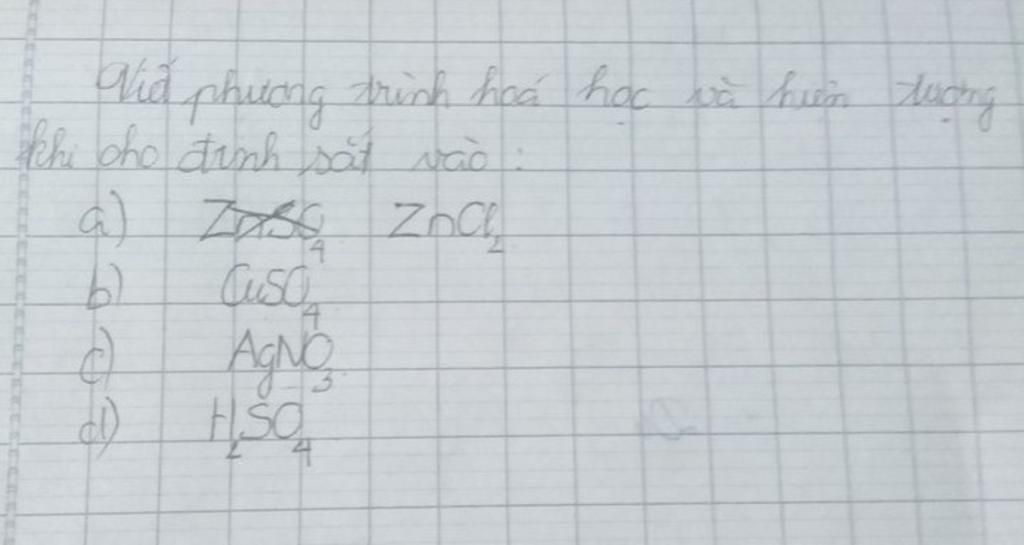 Viết phương trình hoá học và hiện tượng
khi cho đinh sắt vào :
a) ZnSO4 ZnCl2
b) CuSO4
c) AgNO3
d) H2SO4